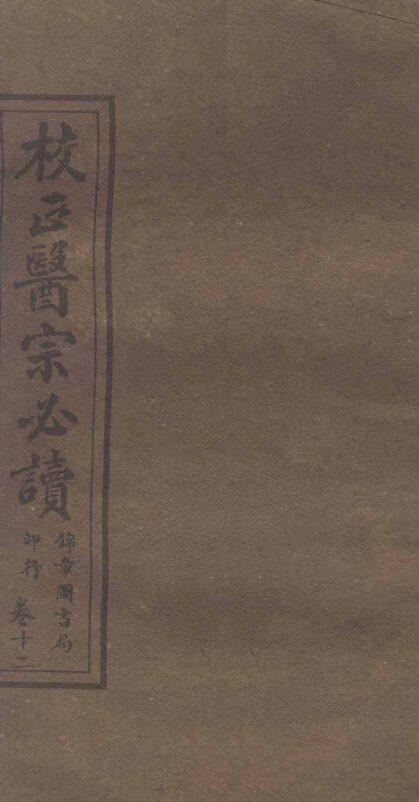 校正醫宗必讀
錦章圖書局
印行
卷十二